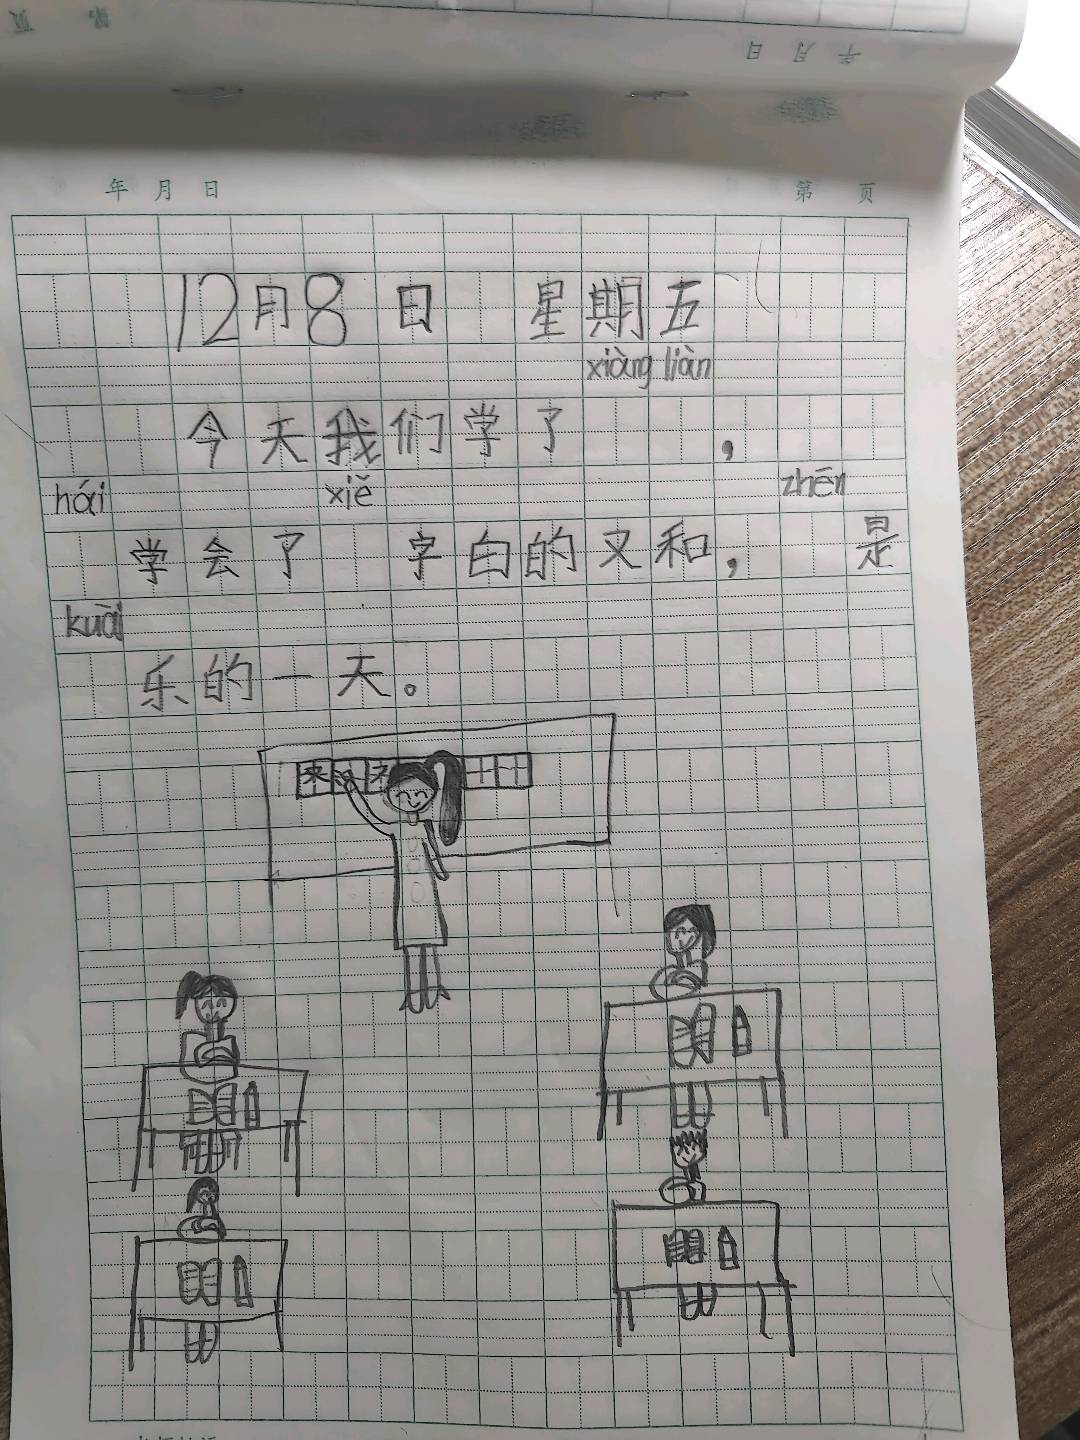 年 月 日 第 页
12月8日 星期五
xiàng liàn
今天我们学了 ，
hái xiě zhēn
学会了 字白的又和， 是
kuài
乐的一天。